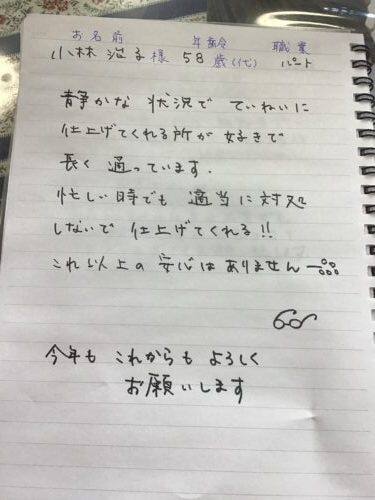 お名前 年齢 職業
小林 浩子様 58歳(代) パート
静かな 状況で ていねいに
仕上げてくれる所が 好きで
長く 通っています.
忙しい時でも 適当に対処
しないで 仕上げてくれる!!
これ以上の 安心はありません
今年も これからも よろしく
お願いします